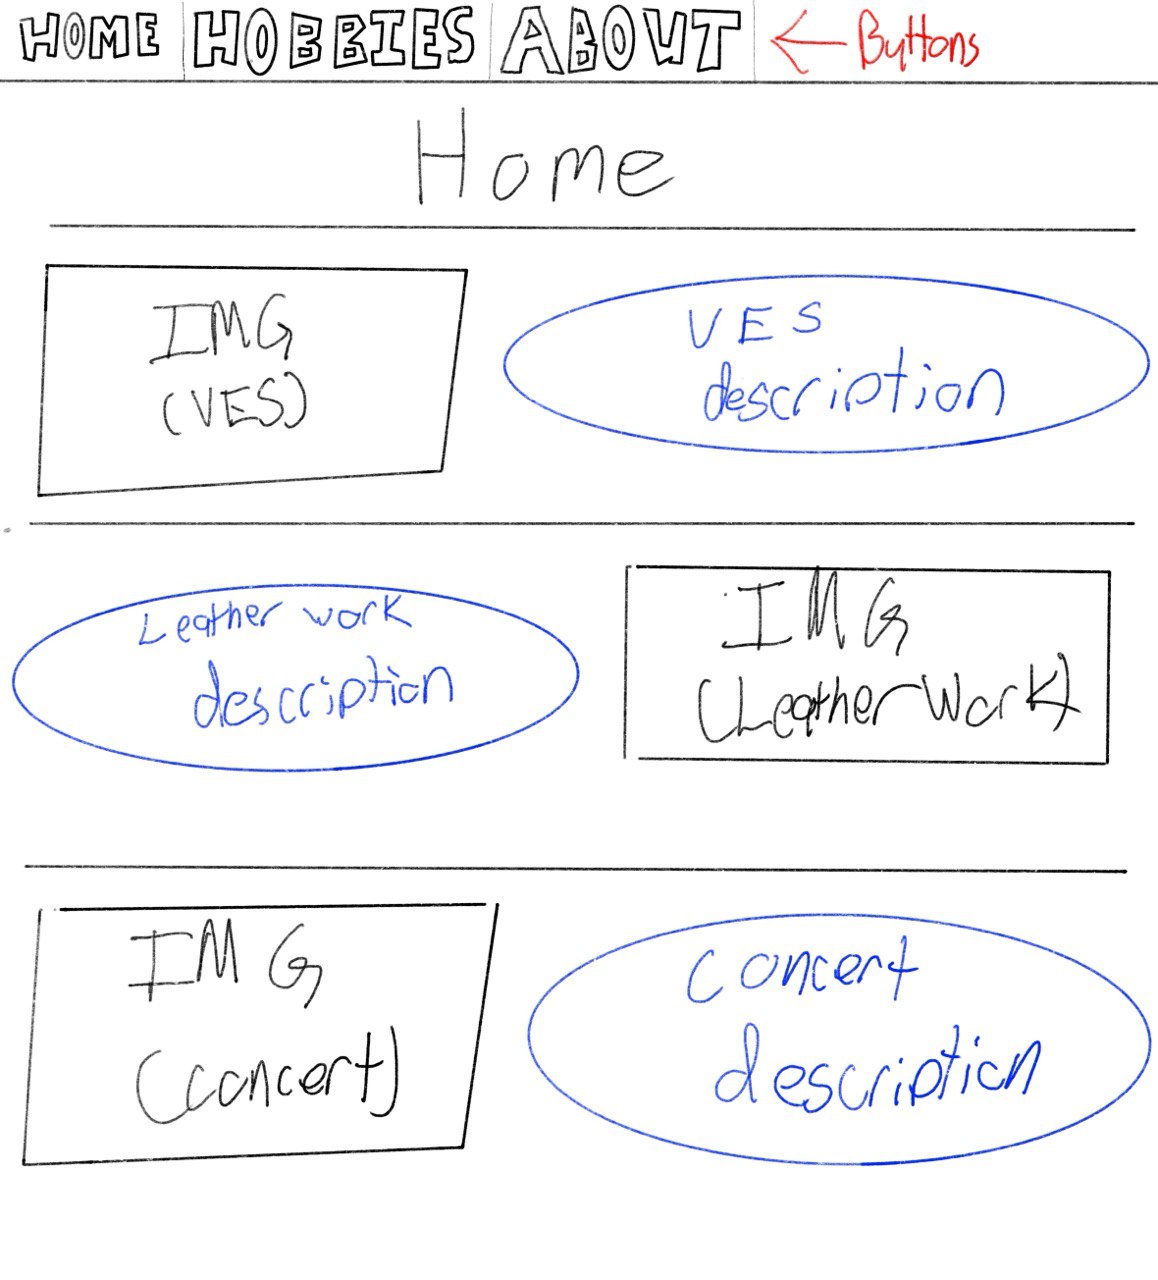 HOME HOBBIES ABOUT ← Buttons
Home
IMG
(VES)
VES
description
Leather work
description
IMG
(Leather Work)
IMG
(concert)
concert
description